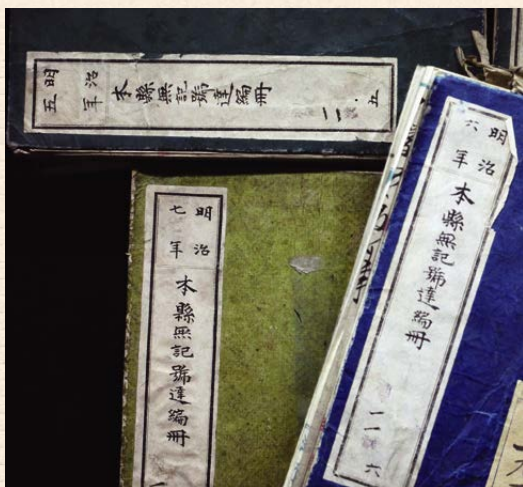 明治
五年
本縣無記號達編冊
一・五
明治
七年
本縣無記號達編冊
明治
六年
本縣無記號達編冊
二 六